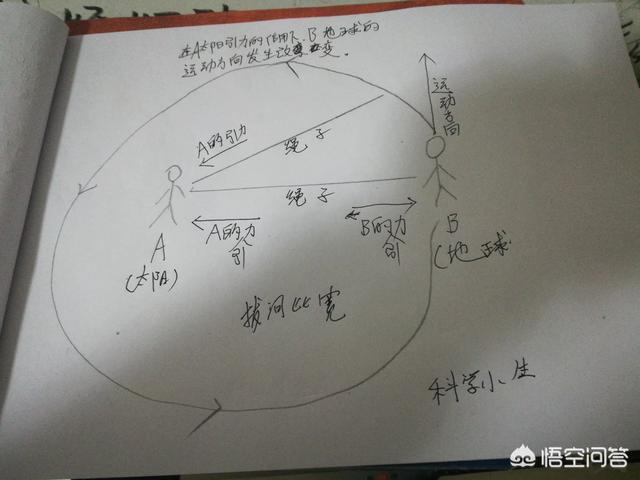 在A太阳引力的作用下、B地球的
运动方向发生改变。
运动方向
A的引力
绳子
绳子
A的力
引
B的力
引
A
(太阳)
B
(地球
拔河比宽
科学小生
悟空问答